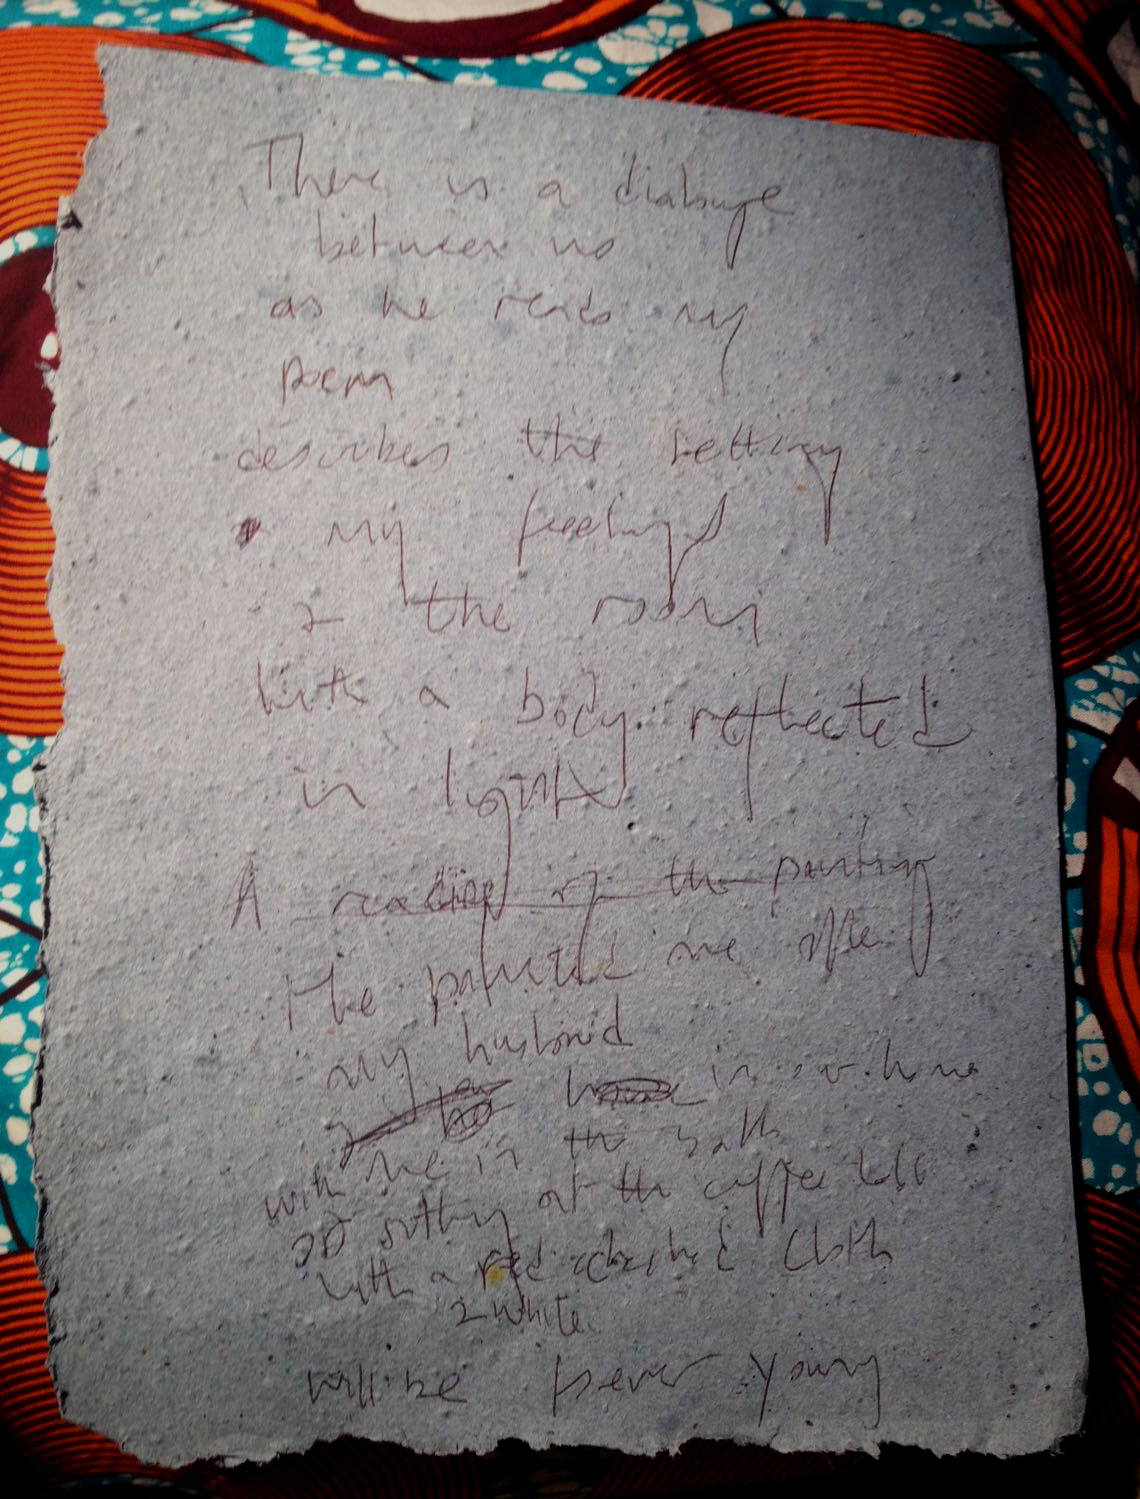 There is a dialogue
between us
as he reads my
poem
describes the setting
my feelings
& the room
with a body reflected
in light
A reading of the painting
He painted me often
my husband
in our home
with me in the bath
sitting at the coffee table
with a red checked cloth
& white
will be forever young